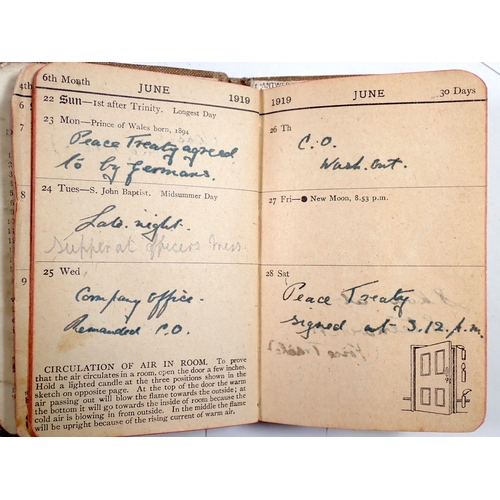 6th Month JUNE 1919
22 Sun—1st after Trinity. Longest Day
23 Mon—Prince of Wales born, 1894
Peace Treaty agreed
to by Germans.
24 Tues—S. John Baptist. Midsummer Day
Late night.
Supper at Officers Mess.
25 Wed
Company Office.
Remanded C.O.
CIRCULATION OF AIR IN ROOM. To prove
that the air circulates in a room, open the door a few inches.
Hold a lighted candle at the three positions shown in the
sketch on opposite page. At the top of the door the warm
air passing out will blow the flame towards the outside; at
the bottom it will go towards the inside of room because the
cold air is blowing in from outside. In the middle the flame
will be upright because of the rising current of warm air.
1919 JUNE 30 Days
26 Th
C.O.
Wash out.
27 Fri—● New Moon, 8.53 p.m.
28 Sat
Peace Treaty
signed at 3.12. p.m.
4th
6
7
8
9